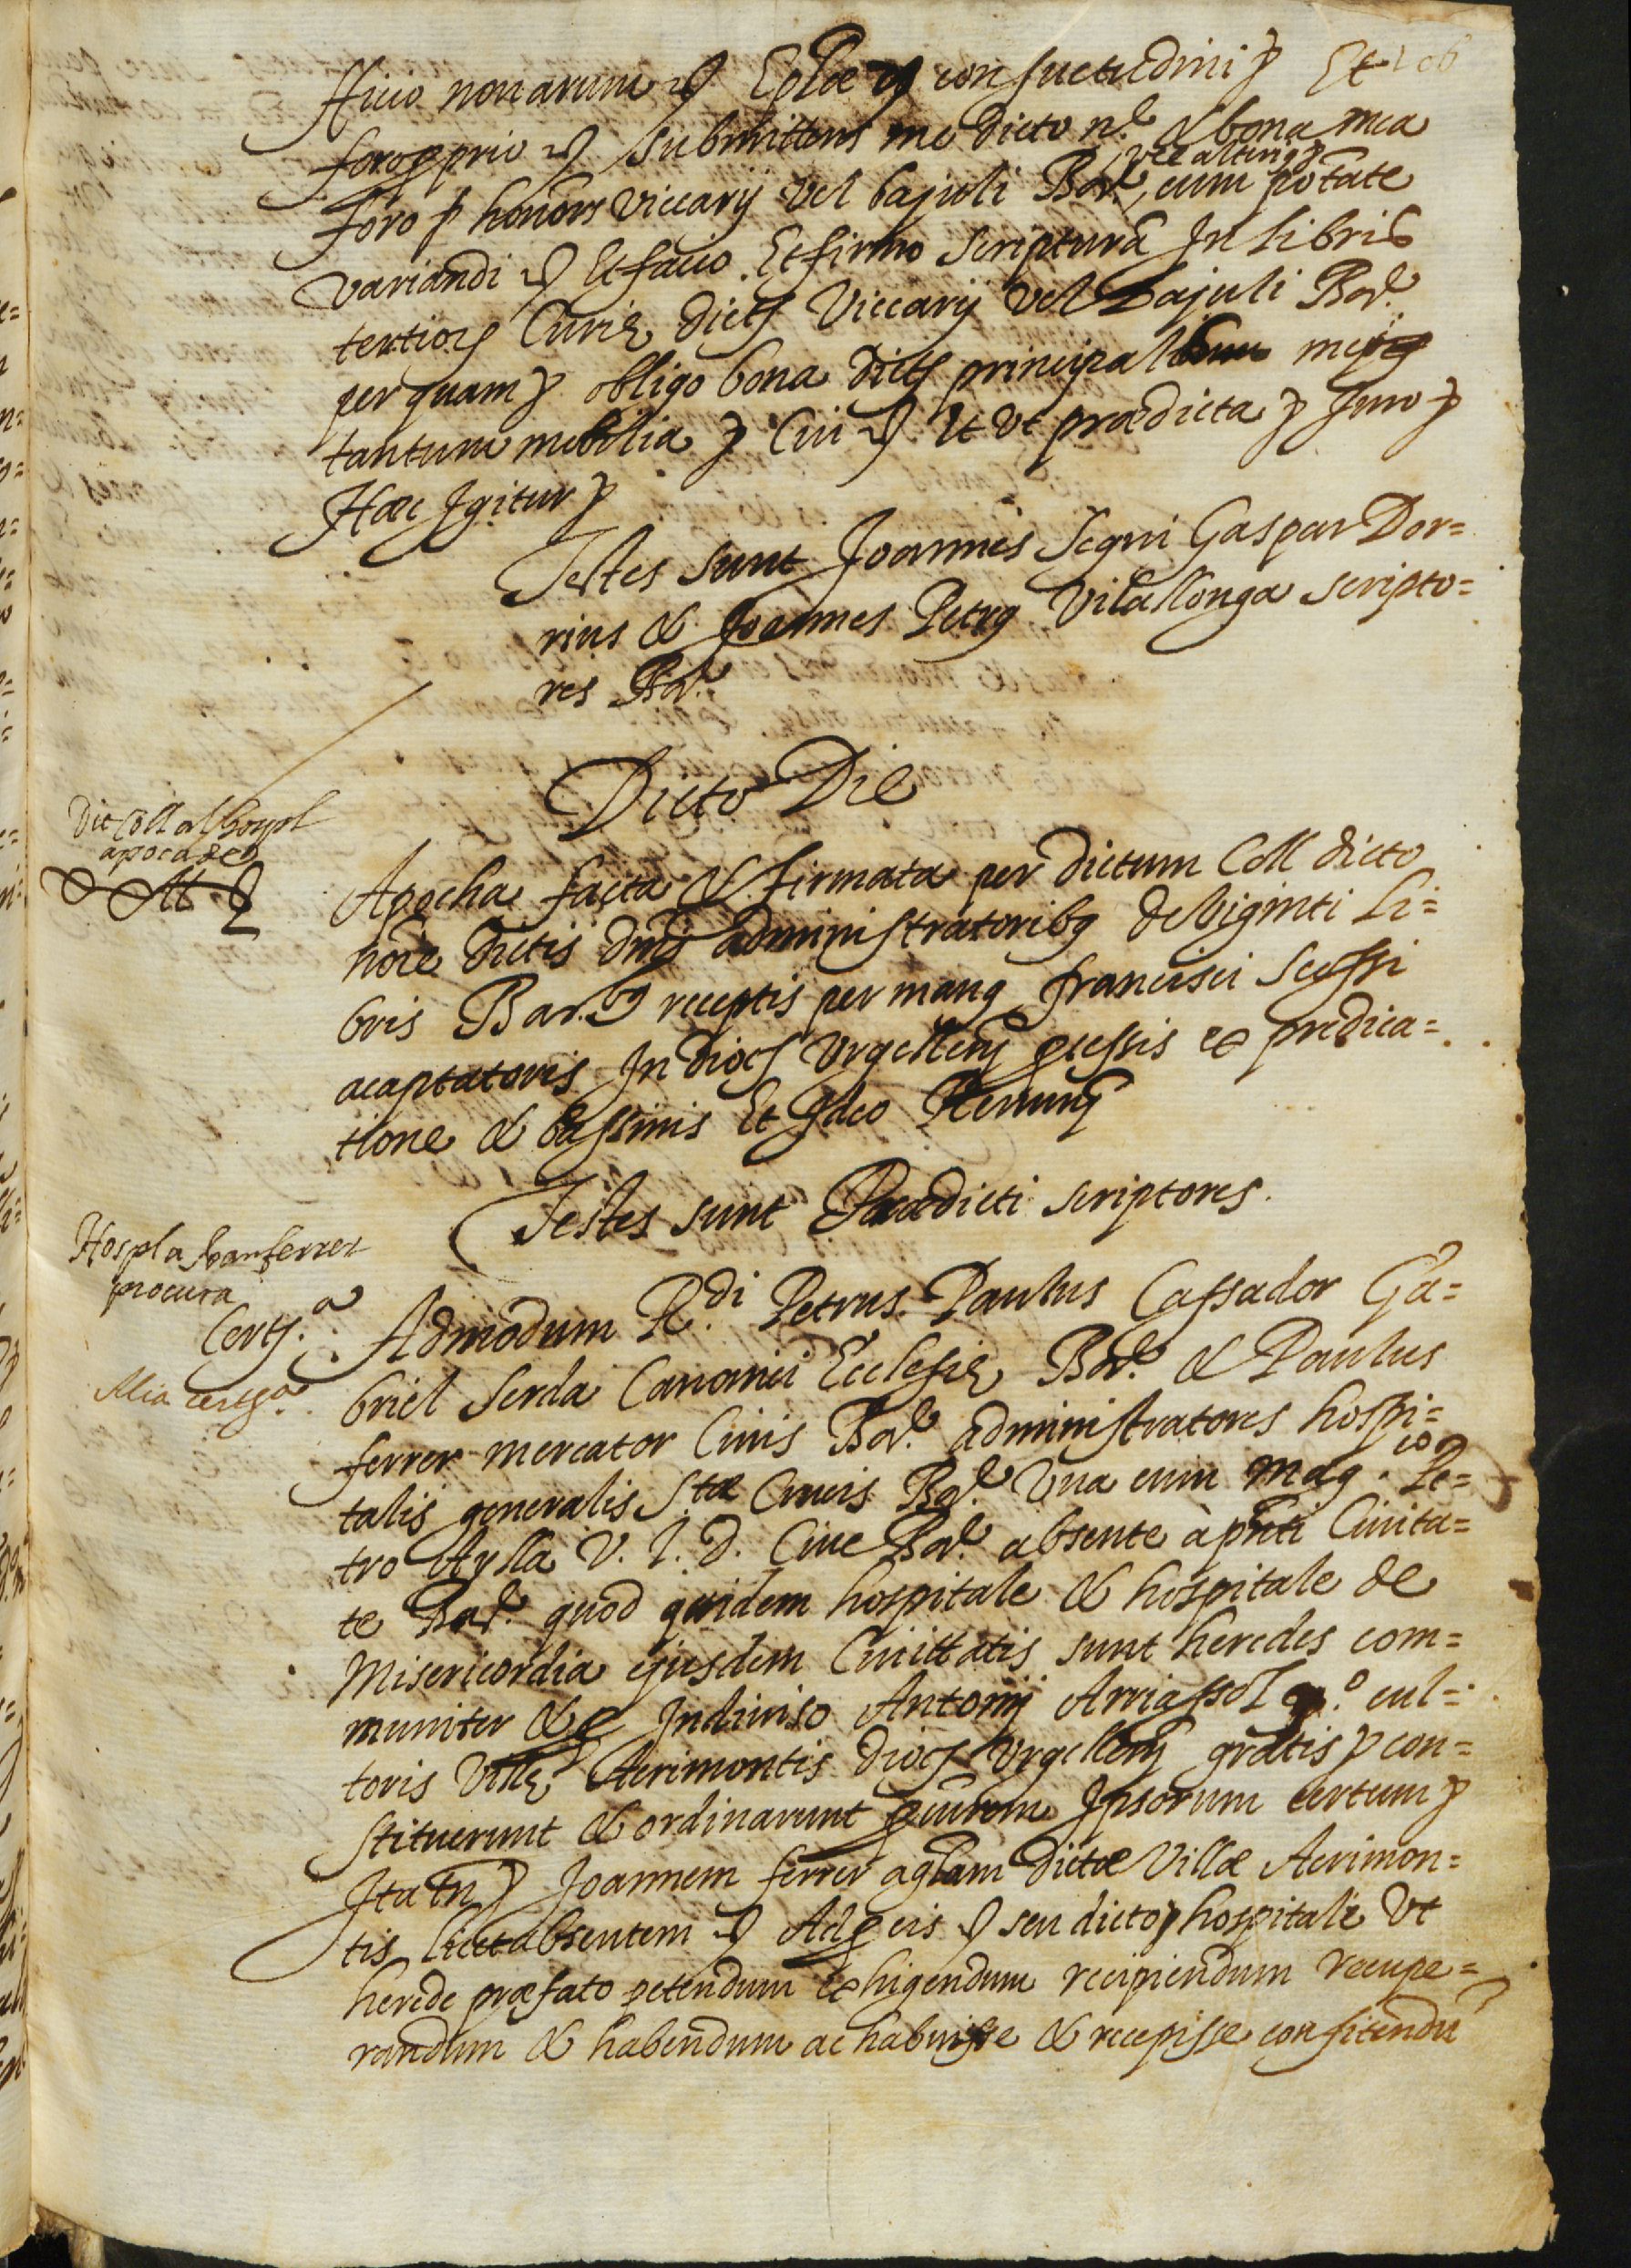 ficio novarum Eplæ consuetudini Et
foro pprio submittens me dicto n.e & bona mea
foro honors Viccarij vel bajuli Bar.e, vel alterius cum potate
variandi Et facio. Et firmo scripturã In Libris
tertiorũ Curiæ dicti Viccarij vel Bajuli Bar.e
per quam obligo bona dicti principalis mei
tantum mobilia Cui Et Vt prædicta Juro
Hæc Igitur
Testes sunt Joannes Segui Gaspar Dor=
rius & Joannes Petrus Vilallonga scripto=
res Bar.e
Dicto Die
Dit Coll al hospl
apoca de
Apocha facta & firmata per dictum Coll dicto
noïe dictis dnis administratoribus de viginti Li=
bris Bar. receptis per manus francisci Scussi
acaptatoris In dioc Vrgellen ex predica=
tione & bassinis Et Ideo Renun
Testes sunt Prædicti scriptores.
Hospl a Joan ferrer
procura
Cert.a
Alia cert.a
Admodum R.di Petrus Paulus Cassador Ga=
briel Serda Canonici Ecclesiæ Bar.e & Paulus
ferrer mercator Civis Bar.e administratores hospi=
talis generalis Stæ Crucis Bar.e Vna cum mag.co Pe=
tro Aylla V. I. D. Cive Bar.e absente à pnti Civita=
te Bar.e quod quidem hospitale & hospitale de
Misericordia ejusdem Civittatis sunt heredes com=
muniter & p Indiviso Antonij Arriassol q.o cul=
toris Villæ Acrimontis dioc Vrgellen gratis con=
stituerunt & ordinarunt pcurem Ipsorum certum
Ita tn Joannem ferrer aglam dictæ Villæ Acrimon=
tis licet absentem Ad p eis seu dicto hospitali Vt
herede præfato petendum exhigendum recipiendum recupe=
randum & habendum ac habuisse & recepisse confitendũ